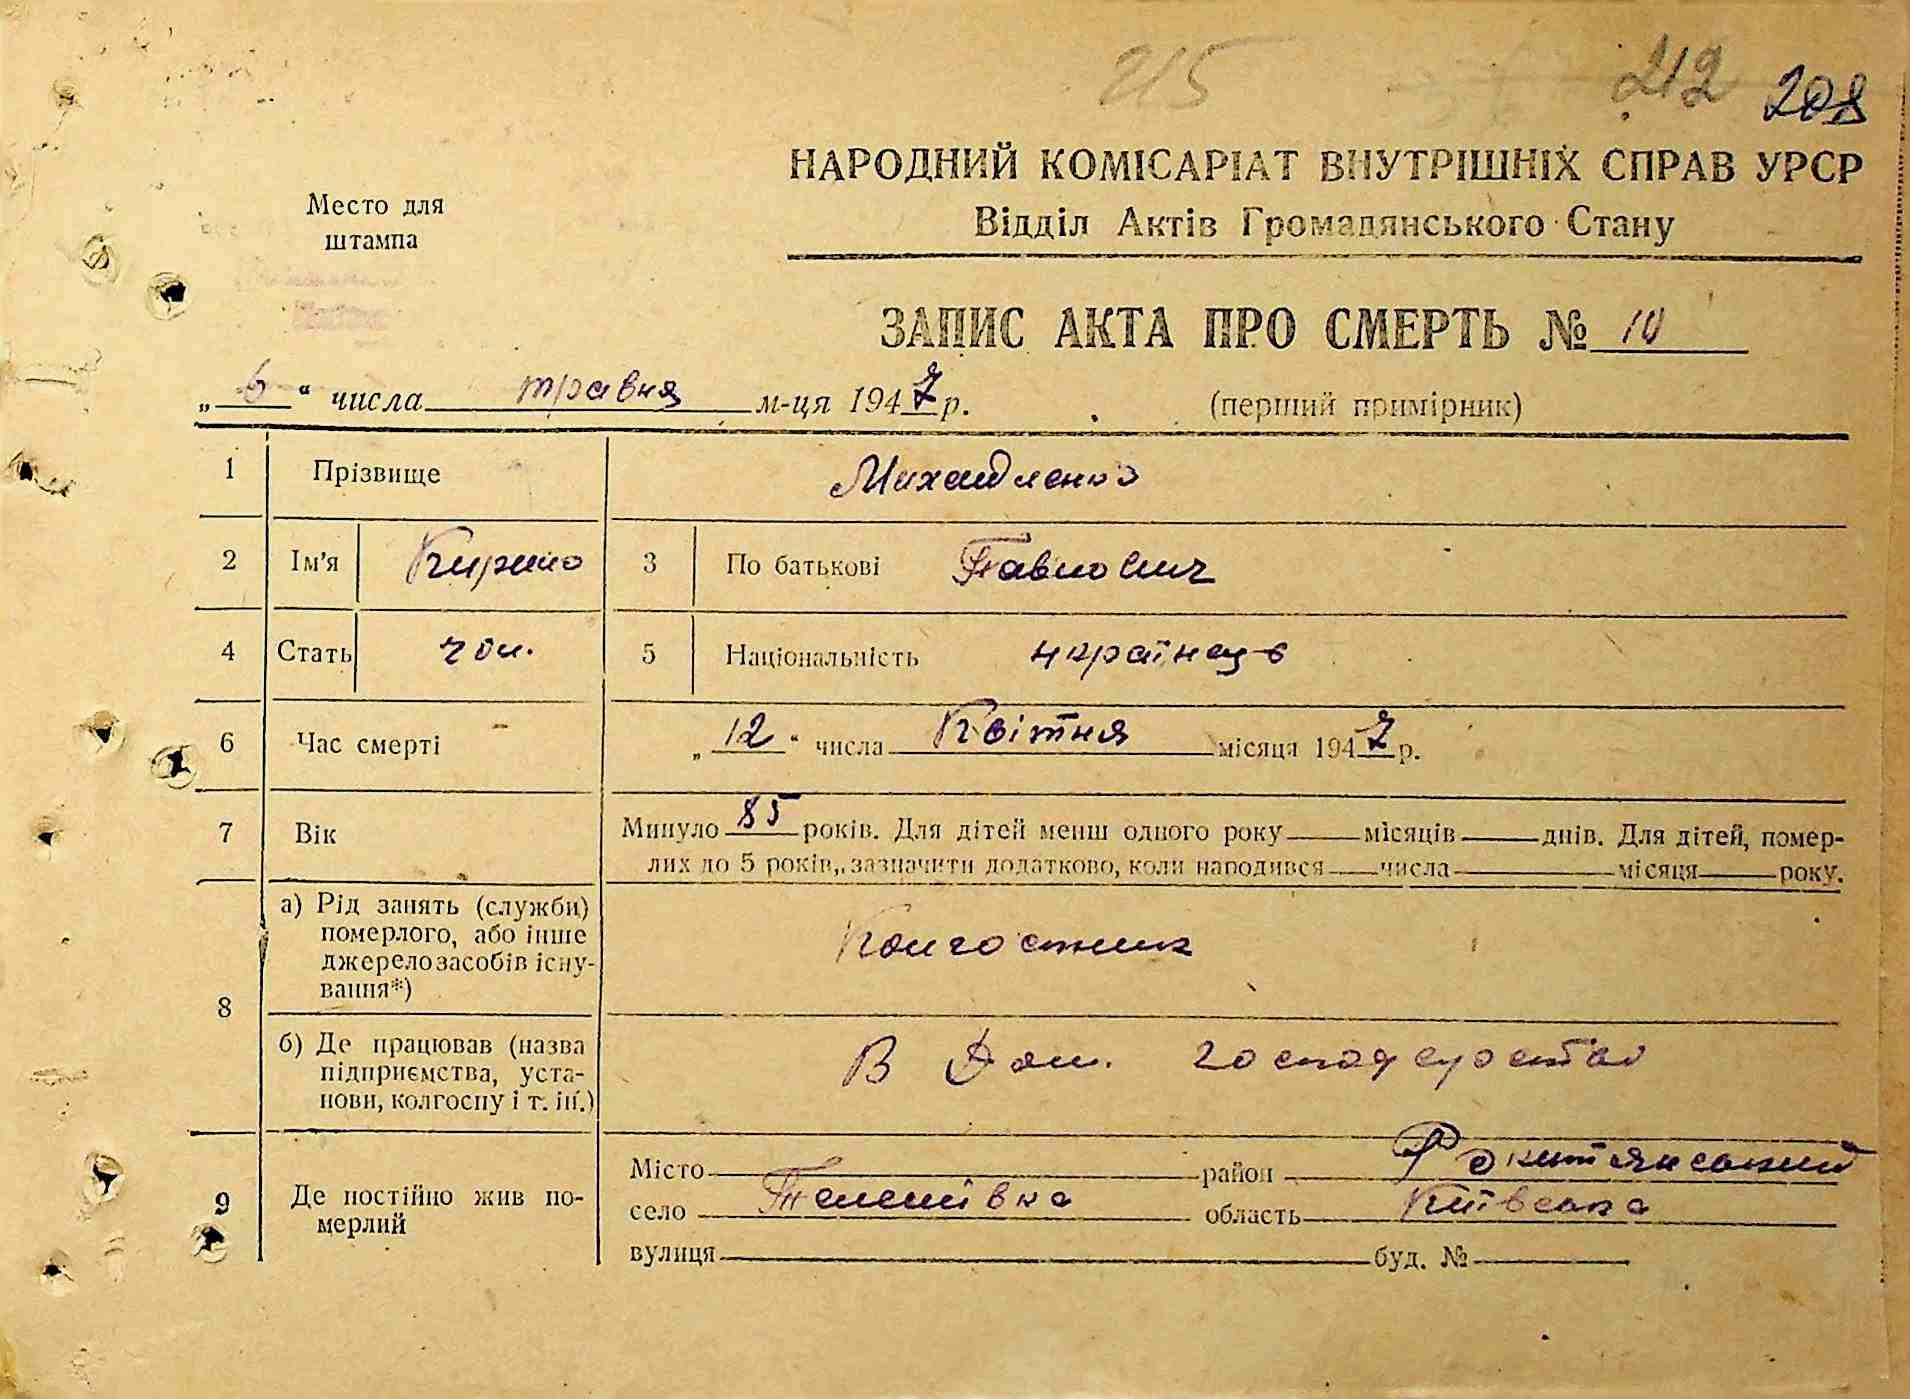 215 212 208
НАРОДНИЙ КОМІСАРІАТ ВНУТРІШНІХ СПРАВ УРСР
Место для
штампа
Відділ Актів Громадянського Стану
ЗАПИС АКТА ПРО СМЕРТЬ № 10
„6“ числа травня м-ця 1947 р. (перший примірник)
1 Прізвище Михайленко
2 Ім'я Кирило 3 По батькові Павлович
4 Стать чол. 5 Національність українець
6 Час смерті „12“ числа Квітня місяця 1947 р.
7 Вік Минуло 85 років. Для дітей менш одного року місяців днів. Для дітей, помер-
лих до 5 років, зазначити додатково, коли народився числа місяця року.
8 а) Рід занять (служби)
померлого, або інше
джерело засобів існу-
вання*)
Колгоспник
б) Де працював (назва
підприємства, уста-
нови, колгоспу і т. ін.)
В Дом. господарстві
9 Де постійно жив по-
мерлий
Місто район Рокитянський
село Телешівка область Київська
вулиця буд. №